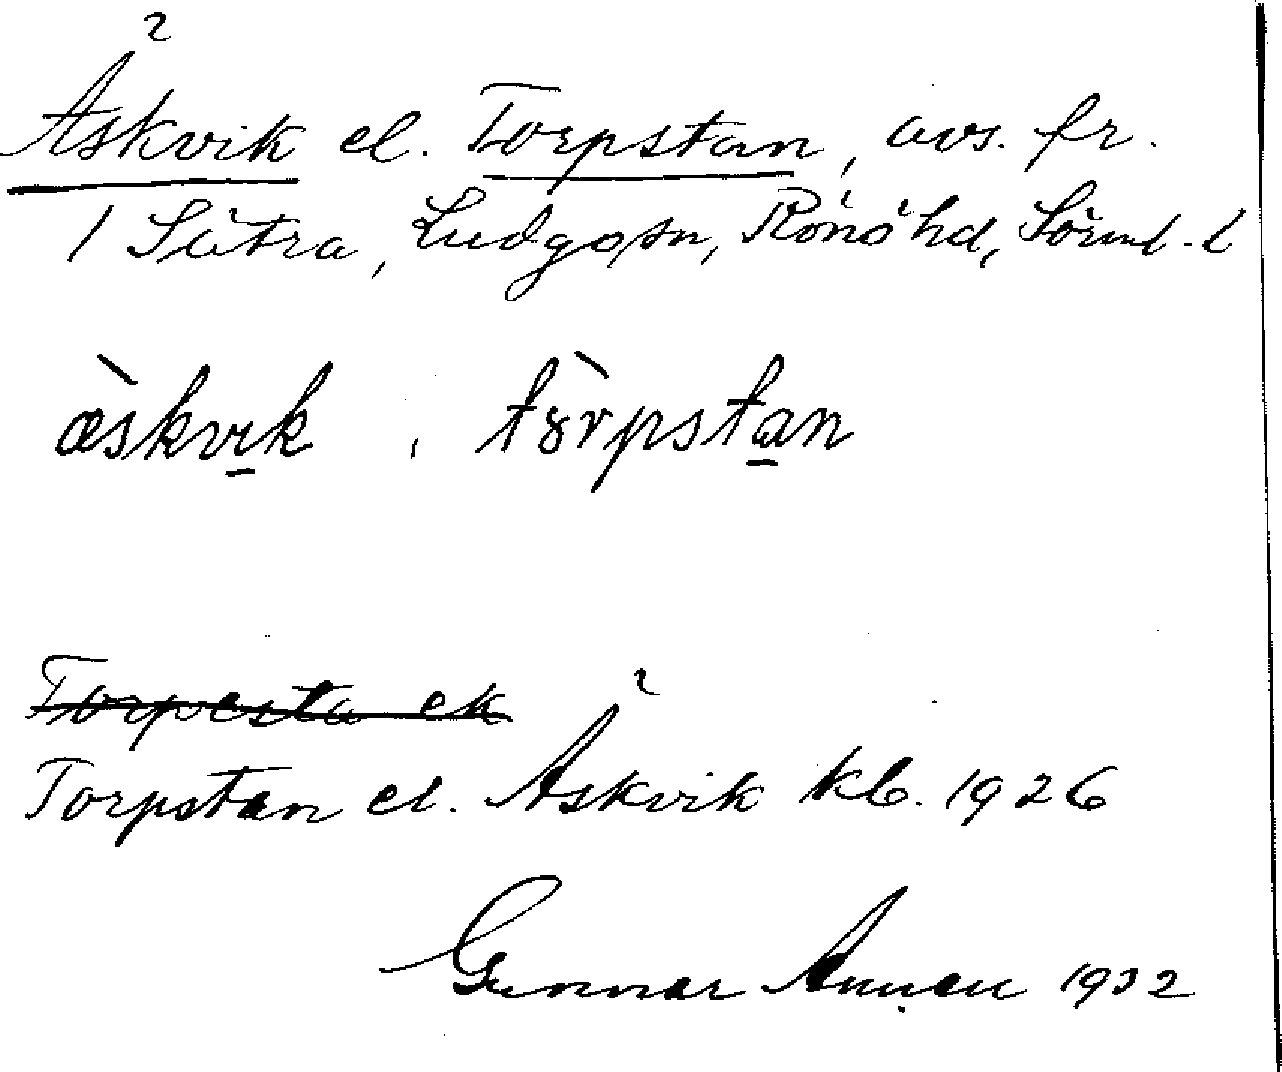 Äskvik el. Torpstan, avs. fr.
1 Sätra, Ludgo sn, Rönö hd, Sörml. l
æ̀skvik , tòrpstan
Torpesta ek
Torpstan el. Äskvik kb. 1926
Gunnar Annell 1932